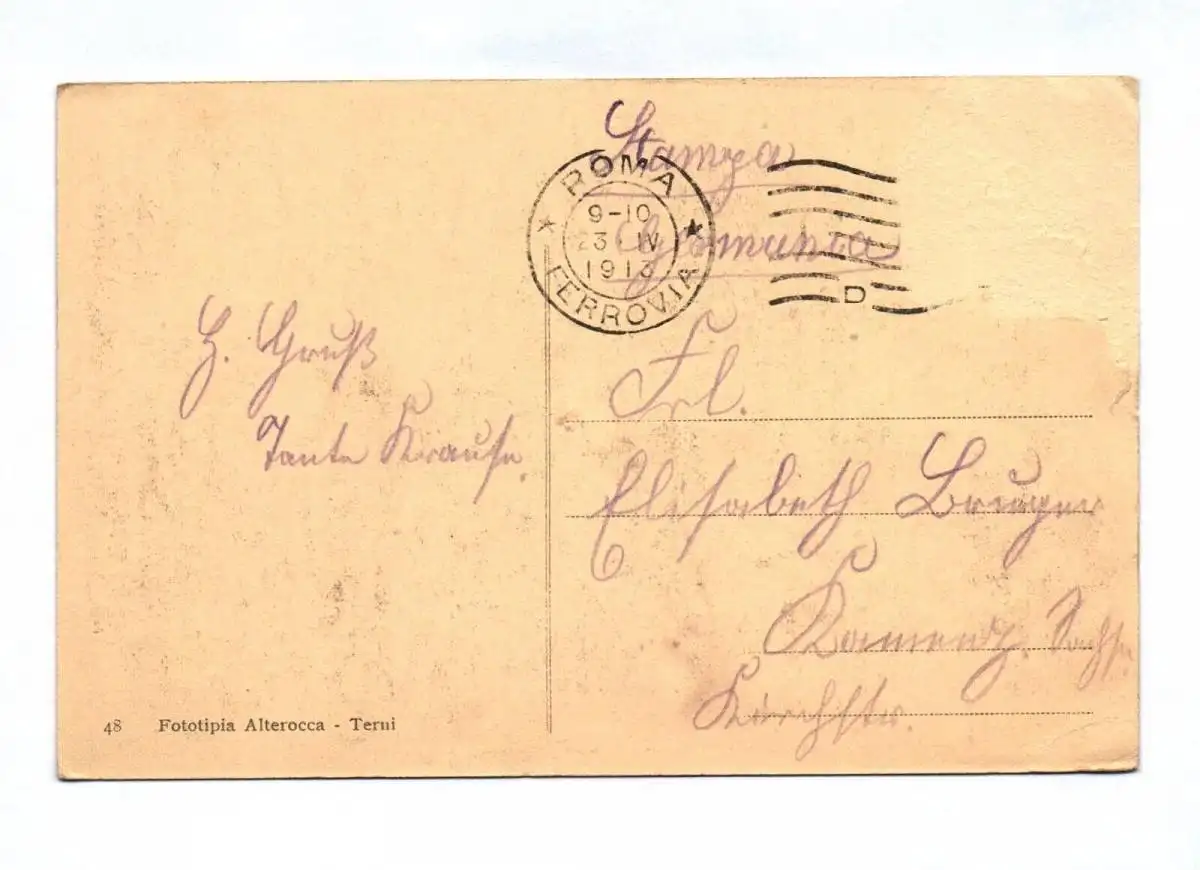 Stampa
Germania
ROMA
9-10
23 IV
1913
FERROVIA
D
H. Gruß
Tante Krause.
Frl.
Elisabeth Bruger
Kamenz. Sachsen
Kirchstr.
48 Fototipia Alterocca - Terni